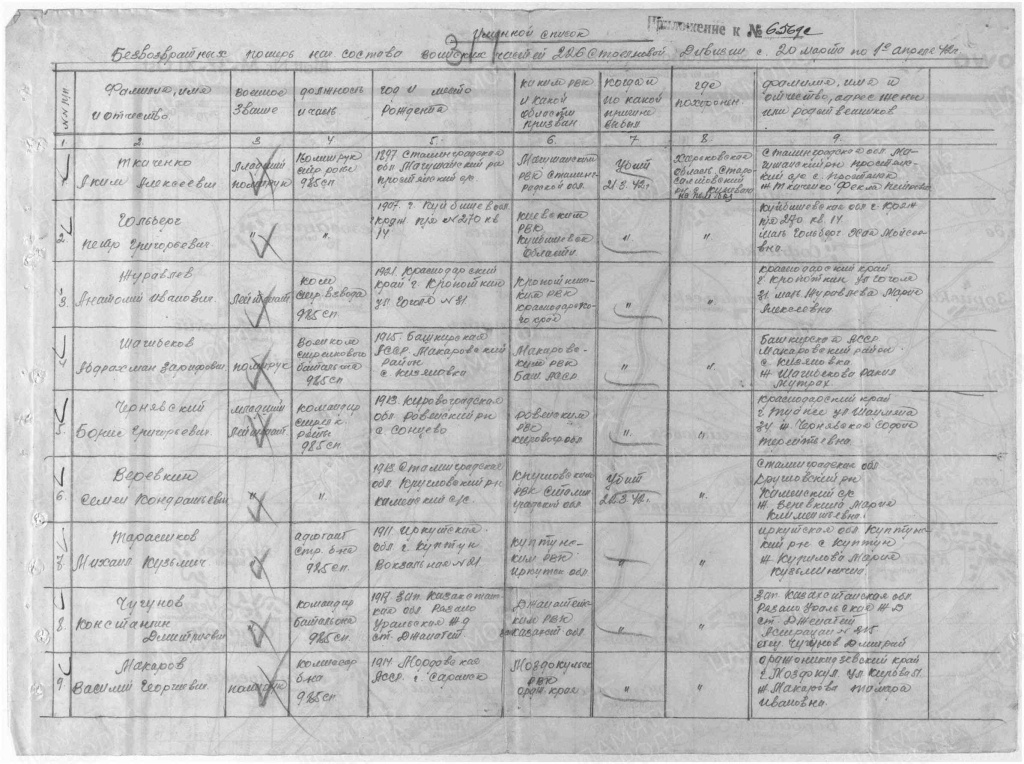 Приложение к № 6569с
3
Именной список
Безвозвратных потерь нач состава воинских частей 226 Стрелковой Дивизии с 20 марта по 1е апреля 42г.
№№ п/п
Фамилия, имя и отчество
военное звание
должность и часть
год и место рождения
каким РВК и какой области призван
когда и по какой причине выбыл
где похоронен
фамилия, имя и отчество, адрес жены или родственников
1 2 3 4 5. 6. 7 8. 9.
1
Ткаченко
Аким Алексеевич
Младший политрук
Политрук стр роты 985 сп
1897 Сталинградская обл
Убит
21.3.42г.
Харьковская область, Старо-Салтовский
2.
Гольберг
Петр Григорьевич
"
"
1907. г. Куйбышев обл
п/о № 270 кв 14
Киевским РВК Куйбышевск Области
"
"
Куйбышевская обл
п/о 270 кв. 14
мать Гольберг
3.
Журавлев
Анатолий Иванович.
Лейтенант
Ком стр. взвода 985 сп
1921. Краснодарский край г. Кропоткин ул Гоголя № 31
Кропоткинским РВК Краснодарского края
"
"
Краснодарский край
г. Кропоткин ул Гоголя
31 мать Журавлева Мария
Алексеевна.
4
Шагибеков
Абдрахман
политрук
Военком стрелкового батальона 985 сп
1915. Башкирская АССР. Макаровский район
Макаровским РВК Баш. АССР
"
"
Башкирская АССР
Макаровский район
5.
Чернявский
Борис Григорьевич.
младший лейтенант
командир стрелк. роты 985 сп
1913. Кировоградская обл Ровенский рн
с. Сонцево
Ровенским РВК Кировогр обл
"
"
Краснодарский край
г. Туапсе ул Шаумяна
Чернявская София
6.
Веревкин
Семен Кондратьевич
"
"
1913 Сталинградская обл
с/с
Убит
22.3.42г.
"
Сталинградская обл
Каменский с/с
ж. Веревкина Мария
Климентьевна.
7.
Тарасиков
Михаил Кузьмич
"
адютант стр. б-на 985 сп.
1911. Иркутская обл г. Куйтун
Вокзальная № 21
Куйтунским РВК Иркутск обл.
"
"
Иркутская обл. Куйтунский рн с Куйтун
ж. Мария
Кузьминична.
8.
Чугунов
Константин
Дмитриевич
"
командир батальона 985 сп
1917. Зап. Казахстанская обл Рязано Уральская ж д
ст. Джанатей
"
"
Зап. Казахстанская обл.
Рязано Уральская ж.д
отец Чугунов Дмитрий
9.
Макаров
Василий Георгиевич.
политрук
комиссар б-на 985 сп
1914 Мордовская АССР. г. Саранск
Моздокским РВК ордж. края
"
"
орджоникидзевский край
г. Моздок ул Кирова 51.
ж. Макарова Тамара
Ивановна.